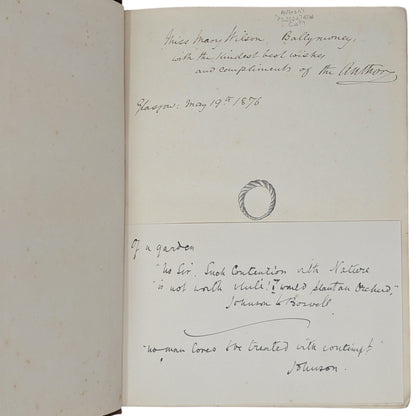 AUTHOR'S
PRESENTATION
COPY
Miss Mary Wilson Ballymoney,
with the kindest best wishes
and compliments of the Author
Glasgow: May 19th 1876
Of a garden
"No Sir. Such Contention with Nature
is not worth while! I would plant an Orchard,"
Johnson to Boswell
"no man loves to be treated with contempt"
Johnson.